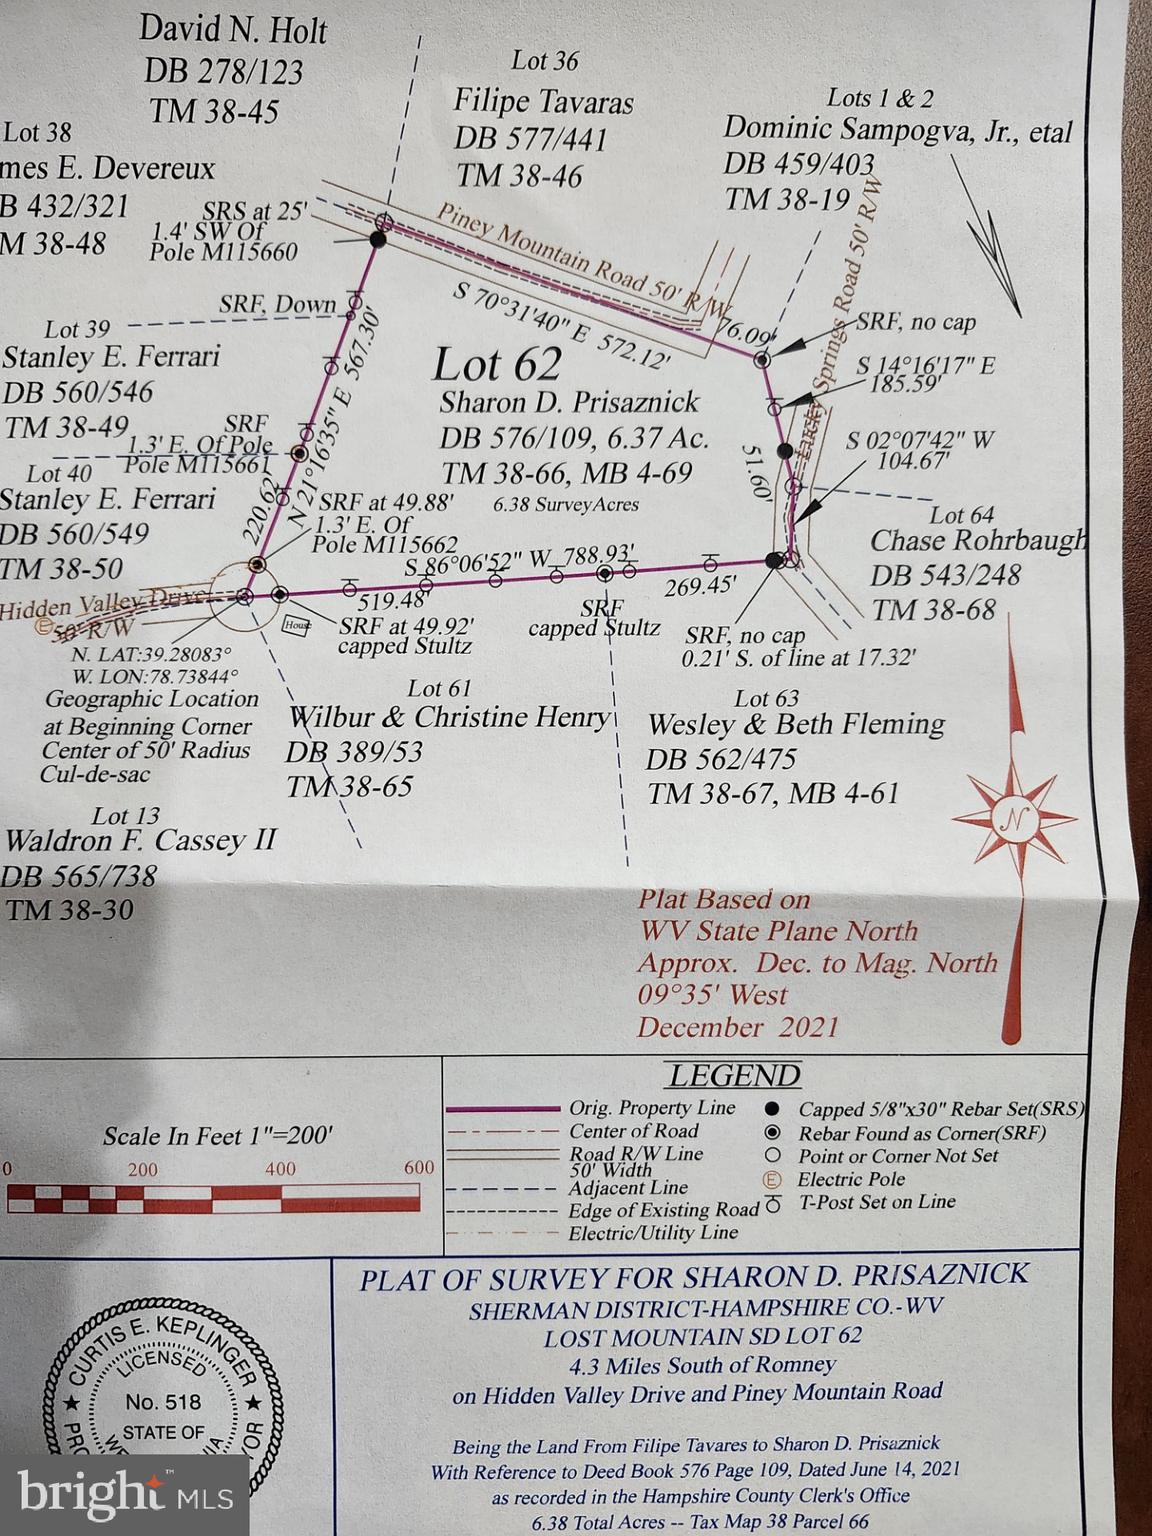 David N. Holt
DB 278/123
TM 38-45
Lot 36
Filipe Tavaras
DB 577/441
TM 38-46
Lots 1 & 2
Dominic Sampogva, Jr., etal
DB 459/403
TM 38-19
Lot 38
mes E. Devereux
B 432/321
M 38-48
SRS at 25'
1.4' SW Of
Pole M115660
Piney Mountain Road 50' R/W
S 70°31'40" E 572.12'
76.09'
Lucky Springs Road 50' R/W
SRF, no cap
S 14°16'17" E
185.59'
S 02°07'42" W
104.67'
51.60'
SRF, Down
Lot 39
Stanley E. Ferrari
DB 560/546
TM 38-49
SRF
1.3' E. Of Pole
Pole M115661
Lot 40
Stanley E. Ferrari
DB 560/549
TM 38-50
N 21°16'35" E 567.30'
220.62'
Lot 62
Sharon D. Prisaznick
DB 576/109, 6.37 Ac.
TM 38-66, MB 4-69
6.38 SurveyAcres
SRF at 49.88'
1.3' E. Of
Pole M115662
S 86°06'52" W 788.93'
519.48'
269.45'
Lot 64
Chase Rohrbaugh
DB 543/248
TM 38-68
Hidden Valley Drive
50' R/W
E
House
SRF at 49.92'
capped Stultz
SRF
capped Stultz
SRF, no cap
0.21' S. of line at 17.32'
N. LAT:39.28083°
W. LON:78.73844°
Geographic Location
at Beginning Corner
Center of 50' Radius
Cul-de-sac
Lot 61
Wilbur & Christine Henry
DB 389/53
TM 38-65
Lot 63
Wesley & Beth Fleming
DB 562/475
TM 38-67, MB 4-61
Lot 13
Waldron F. Cassey II
DB 565/738
TM 38-30
N
Plat Based on
WV State Plane North
Approx. Dec. to Mag. North
09°35' West
December 2021
Scale In Feet 1"=200'
0 200 400 600
LEGEND
Orig. Property Line
Center of Road
Road R/W Line
50' Width
Adjacent Line
Edge of Existing Road
Electric/Utility Line
Capped 5/8"x30" Rebar Set(SRS)
Rebar Found as Corner(SRF)
Point or Corner Not Set
E Electric Pole
T-Post Set on Line
PLAT OF SURVEY FOR SHARON D. PRISAZNICK
SHERMAN DISTRICT-HAMPSHIRE CO.-WV
LOST MOUNTAIN SD LOT 62
4.3 Miles South of Romney
on Hidden Valley Drive and Piney Mountain Road
Being the Land From Filipe Tavares to Sharon D. Prisaznick
With Reference to Deed Book 576 Page 109, Dated June 14, 2021
as recorded in the Hampshire County Clerk's Office
6.38 Total Acres -- Tax Map 38 Parcel 66
CURTIS E. KEPLINGER
LICENSED
No. 518
STATE OF
bright MLS